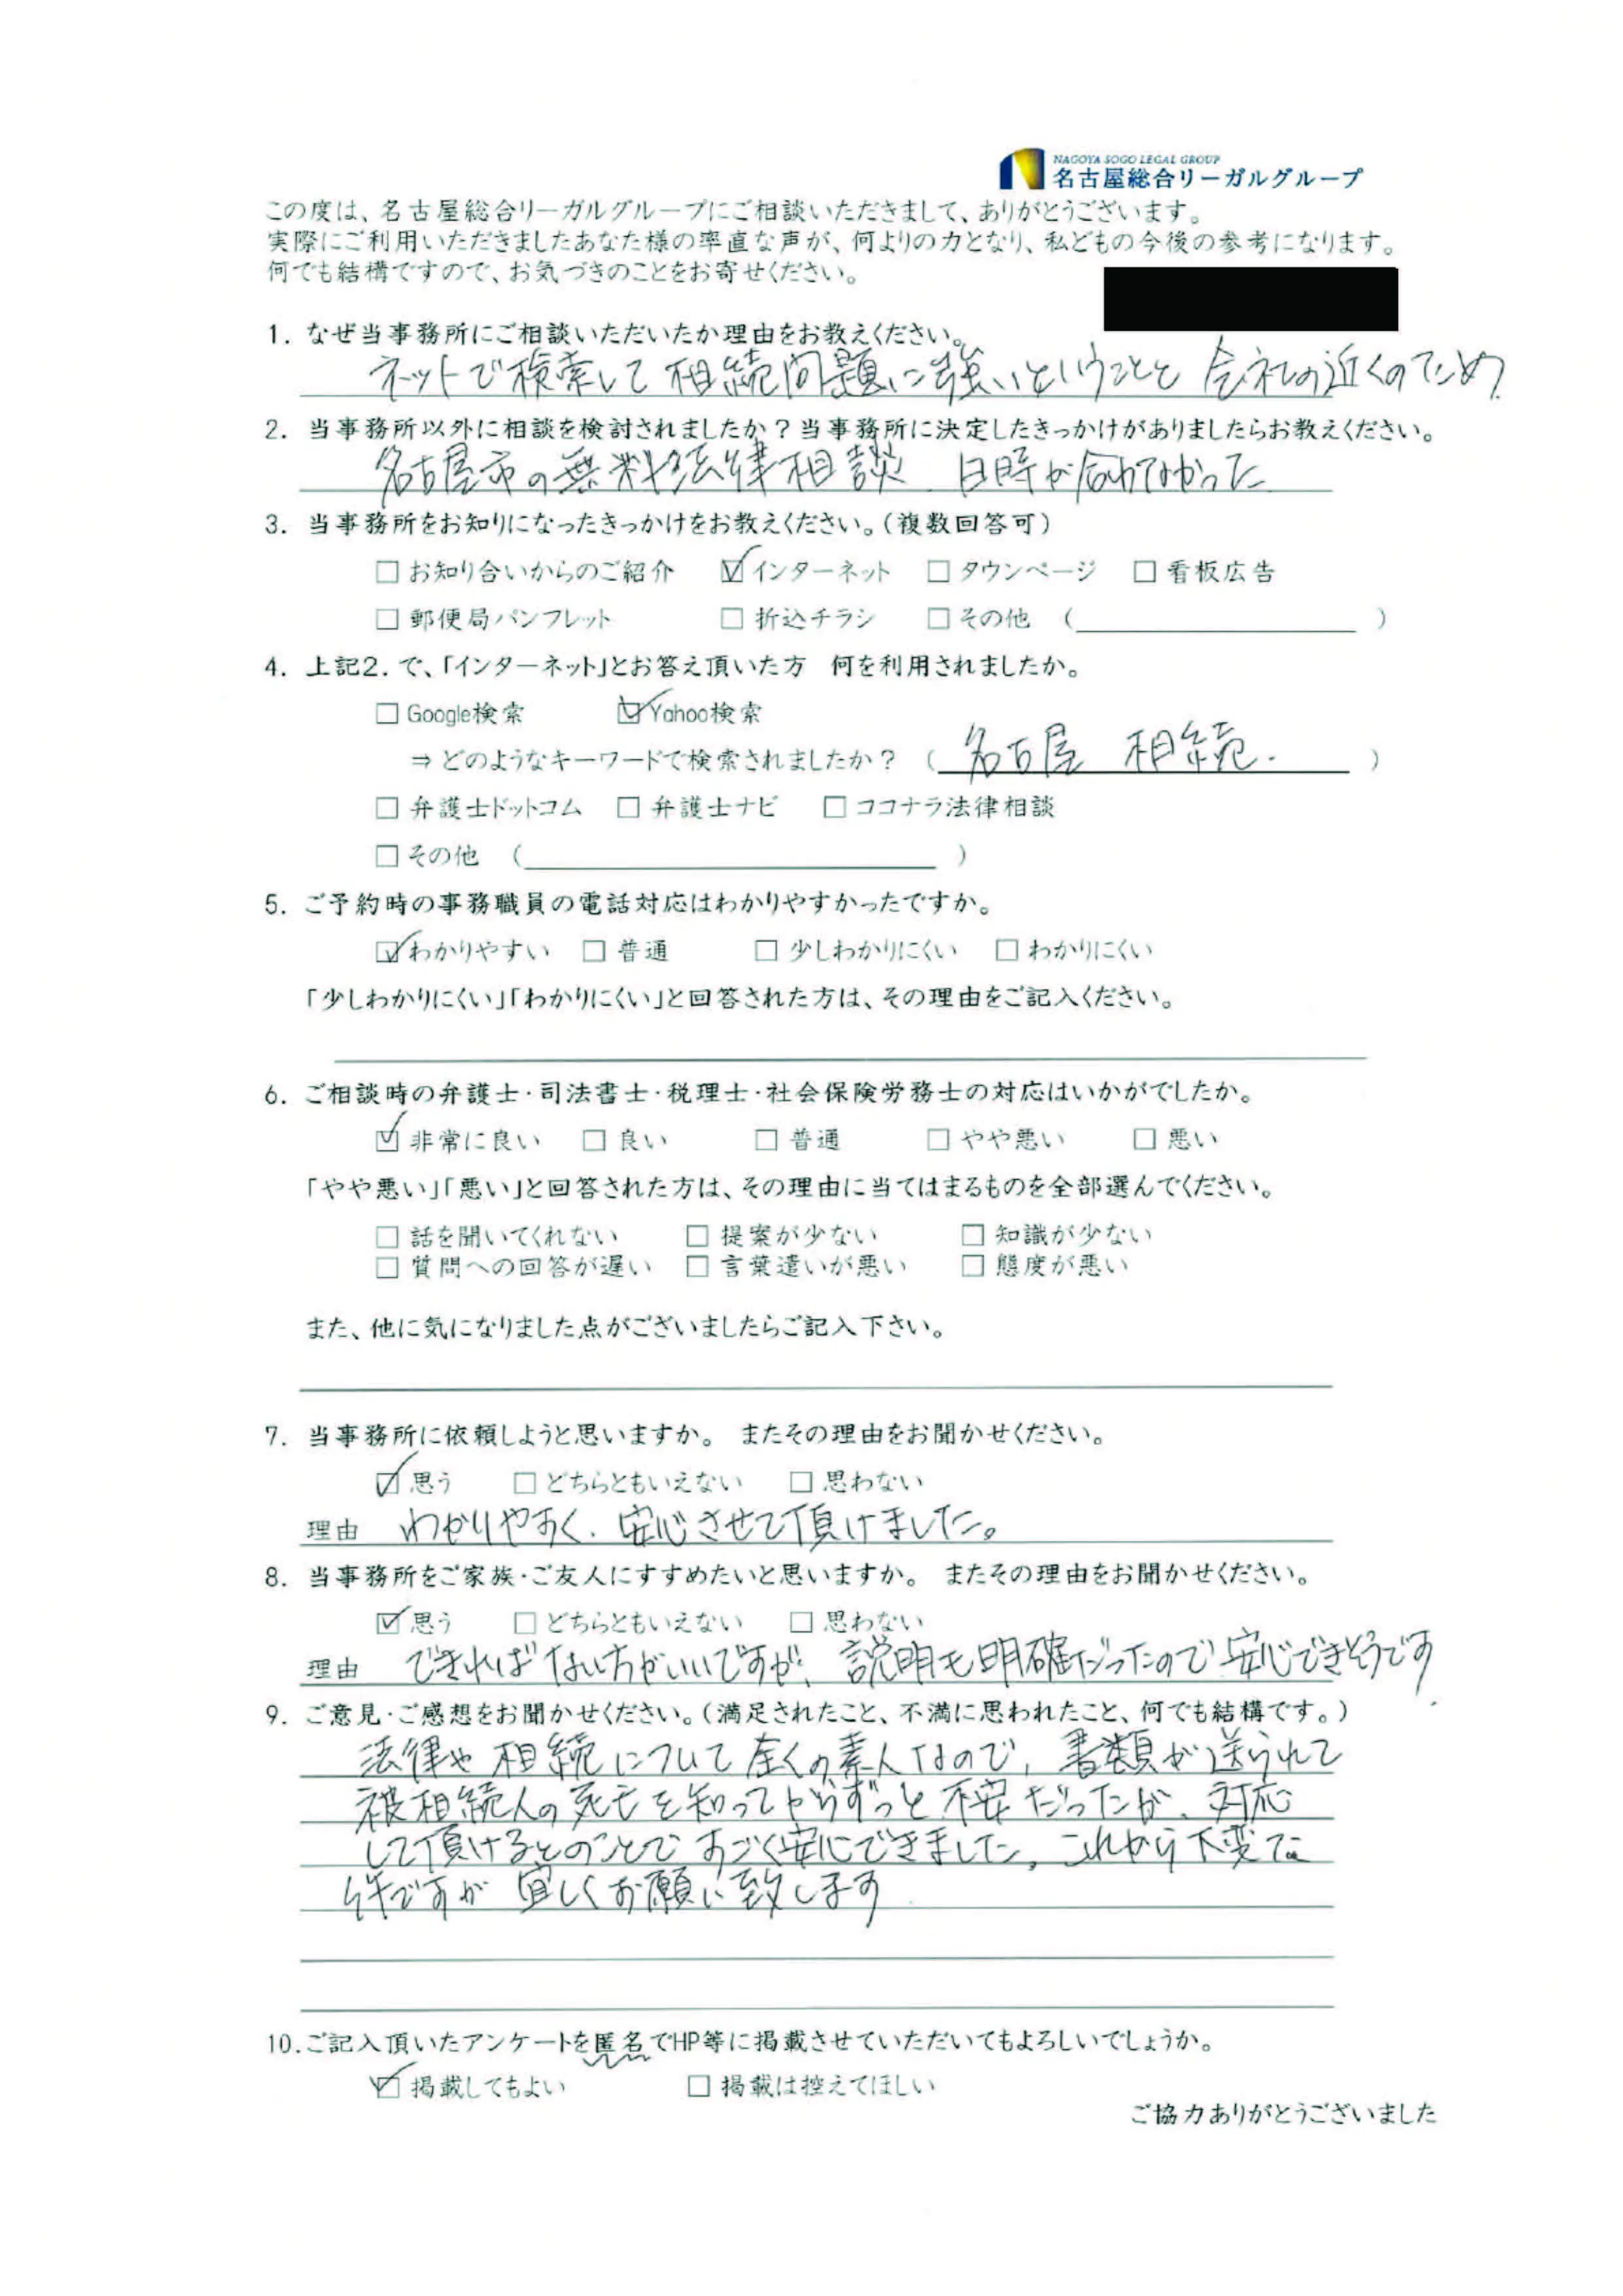 NAGOYA SOGO LEGAL GROUP
名古屋総合リーガルグループ
この度は、名古屋総合リーガルグループにご相談いただきまして、ありがとうございます。
実際にご利用いただきましたあなた様の率直な声が、何よりの力となり、私どもの今後の参考になります。
何でも結構ですので、お気づきのことをお寄せください。
1. なぜ当事務所にご相談いただいたか理由をお教えください。
ネットで検索して相続問題に強いということと 会社の近くのため
2. 当事務所以外に相談を検討されましたか？当事務所に決定したきっかけがありましたらお教えください。
名古屋市の無料法律相談 日時が合わなかった
3. 当事務所をお知りになったきっかけをお教えください。（複数回答可）
□ お知り合いからのご紹介 ☑ インターネット □ タウンページ □ 看板広告
□ 郵便局パンフレット □ 折込チラシ □ その他 （ ）
4. 上記2. で、「インターネット」とお答え頂いた方 何を利用されましたか。
□ Google検索 ☑ Yahoo検索
⇒ どのようなキーワードで検索されましたか？ （ 名古屋 相続. ）
□ 弁護士ドットコム □ 弁護士ナビ □ ココナラ法律相談
□ その他 （ ）
5. ご予約時の事務職員の電話対応はわかりやすかったですか。
☑ わかりやすい □ 普通 □ 少しわかりにくい □ わかりにくい
「少しわかりにくい」「わかりにくい」と回答された方は、その理由をご記入ください。
6. ご相談時の弁護士・司法書士・税理士・社会保険労務士の対応はいかがでしたか。
☑ 非常に良い □ 良い □ 普通 □ やや悪い □ 悪い
「やや悪い」「悪い」と回答された方は、その理由に当てはまるものを全部選んでください。
□ 話を聞いてくれない □ 提案が少ない □ 知識が少ない
□ 質問への回答が遅い □ 言葉遣いが悪い □ 態度が悪い
また、他に気になりました点がございましたらご記入下さい。
7. 当事務所に依頼しようと思いますか。 またその理由をお聞かせください。
☑ 思う □ どちらともいえない □ 思わない
理由 わかりやすく、安心させて頂けました。
8. 当事務所をご家族・ご友人にすすめたいと思いますか。 またその理由をお聞かせください。
☑ 思う □ どちらともいえない □ 思わない
理由 できればない方がいいですが、説明も明確だったので安心できそうです.
9. ご意見・ご感想をお聞かせください。（満足されたこと、不満に思われたこと、何でも結構です。）
法律や相続について全くの素人なので、書類が送られて
被相続人の死亡を知ってからずっと不安だったが、対応
して頂けるとのことですごく安心できました。これから大変な
件ですが 宜しくお願い致します
10. ご記入頂いたアンケートを匿名でHP等に掲載させていただいてもよろしいでしょうか。
☑ 掲載してもよい □ 掲載は控えてほしい
ご協力ありがとうございました